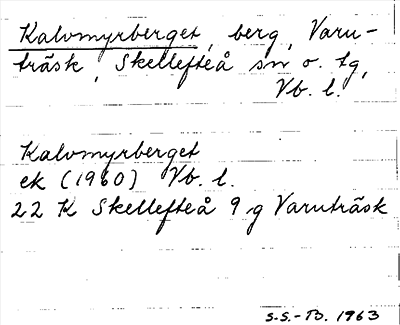 Kalvmyrberget, berg, Varu-
träsk, Skellefteå sn o. tg,
Vb. l.
Kalvmyrberget
ek (1960) Vb. l.
22 K Skellefteå 9 g Varuträsk
S.S.-TB. 1963